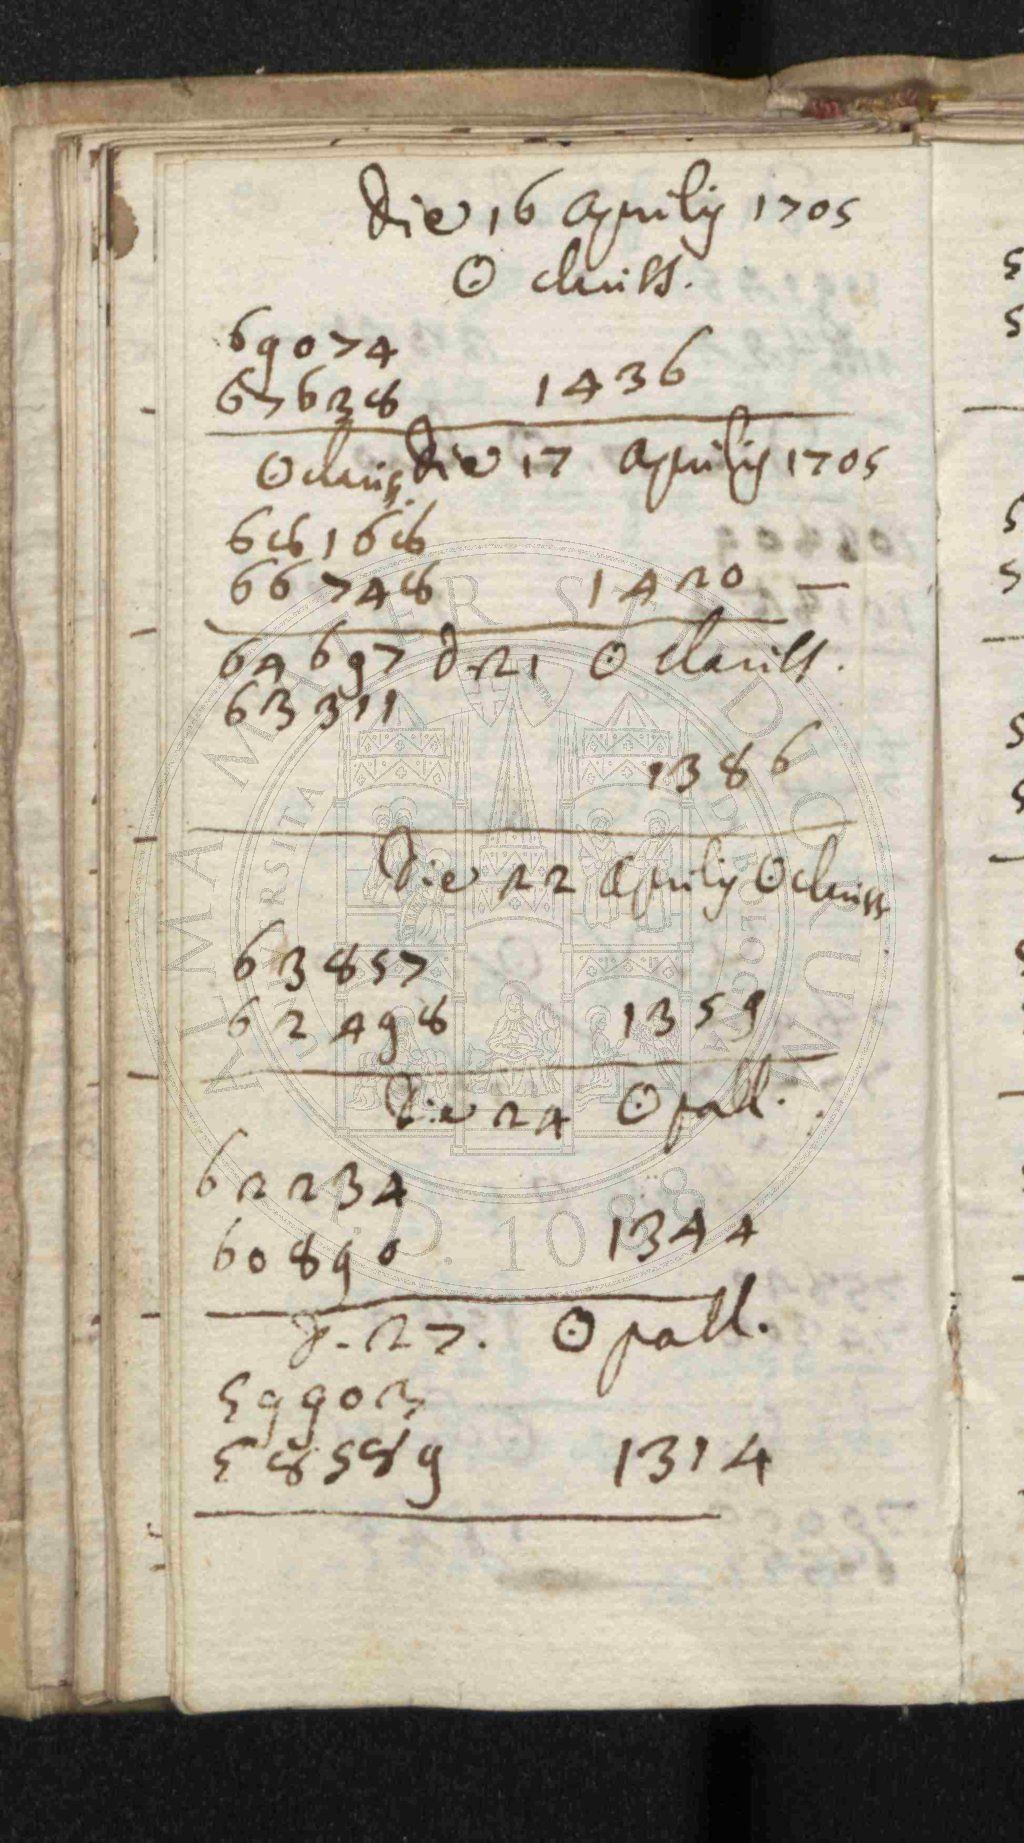 Die 16 Aprilij 1705
☉ clariss.
69074
67638 1436
☉ clariss. Die 17 Aprilij 1705
68168
66748 1420 —
64697 d. 21 ☉ clariss.
63311
1386
Die 22 Aprilij ☉ clariss
63857
62498 1359
Die 24 ☉ pall.
62234
60890 1344
d. 27. ☉ pall.
59903
58589 1314
ALMA MATER STUDIORUM
A.D. 1088